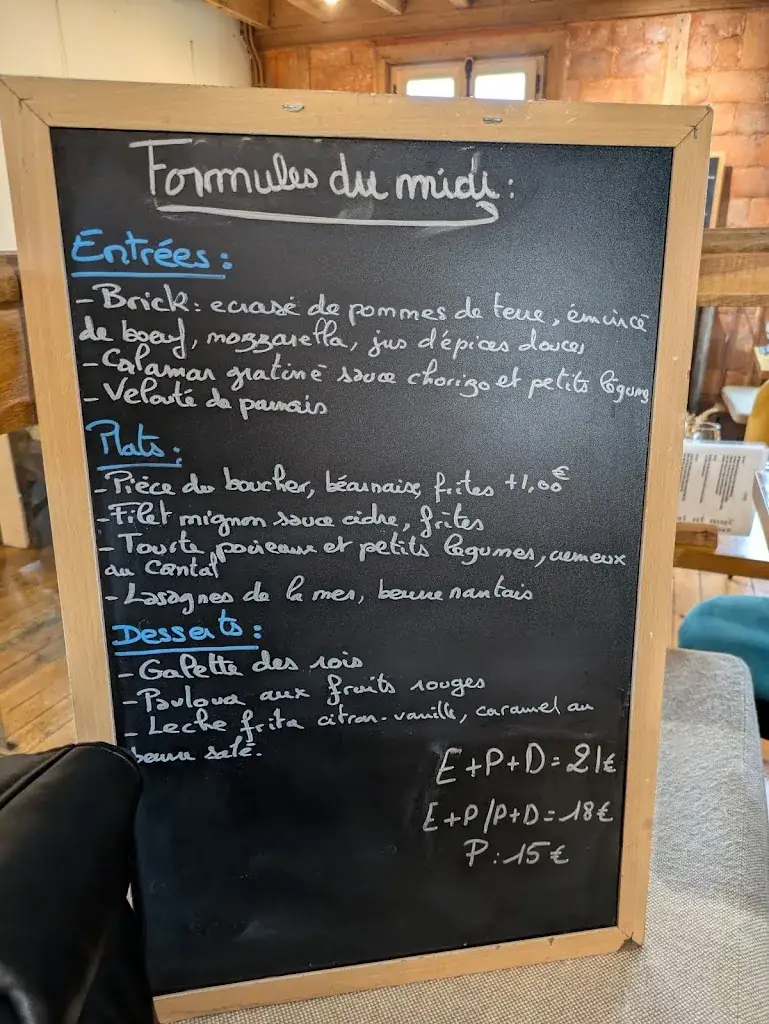 Formules du midi :
Entrées :
- Brick : ecrasé de pommes de terre, émincé
de boeuf, mozzarella, jus d'épices douces
- Calamar gratiné sauce chorizo et petits légums
- Velouté de panais
Plats :
- Pièce du boucher, béarnaise, frites +1,00€
- Filet mignon sauce cidre, frites
- Tourte poireaux et petits légumes, crémeux
au Cantal
- Lasagnes de la mer, beurre nantais
Desserts :
- Galette des rois
- Pavlova aux fruits rouges
- Leche frita citron-vanille, caramel au
beurre salé.
E+P+D = 21€
E+P/P+D = 18€
P : 15€